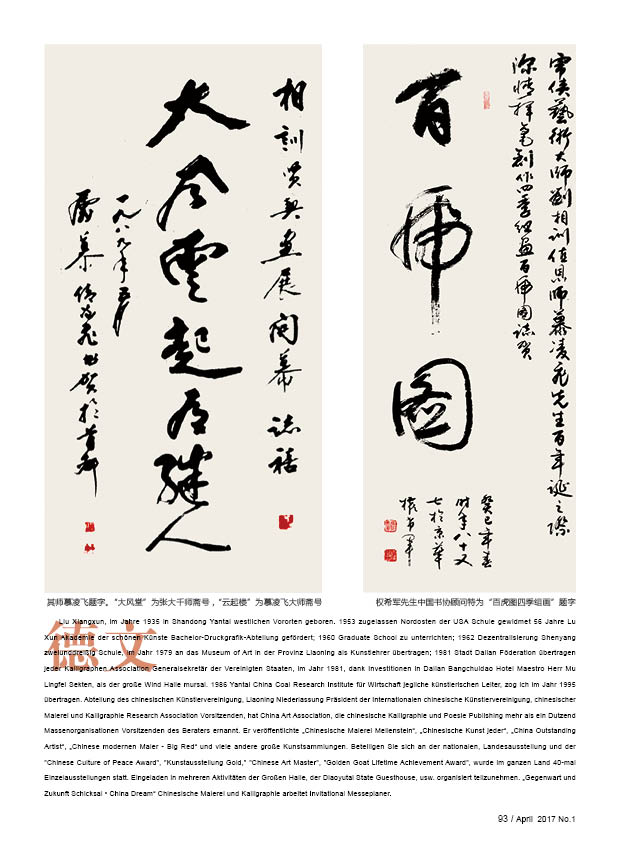 相訓賢契畫展開幕誌禧
大风雲起有継人
一九八九年五月
慕凌飞书贺於首都
藝術大师劉相訓值恩师慕凌飛先生百年誕之際
深情揮毫創作四季组画百虎图誌贺
百虎图
癸巳年春
时年八十又
七於京華
权希军
其师慕凌飞题字。“大风堂”为张大千师斋号，“云起楼”为慕凌飞大师斋号
权希军先生中国书协顾问特为“百虎图四季组画”题字
德文
Liu Xiangxun, im Jahre 1935 in Shandong Yantai westlichen Vororten geboren. 1953 zugelassen Nordosten der USA Schule gewidmet 56 Jahre Lu
Xun Akademie der schönen Künste Bachelor-Druckgrafik-Abteilung gefördert; 1960 Graduate School zu unterrichten; 1962 Dezentralisierung Shenyang
zweiunddreißig Schule, im Jahr 1979 an das Museum of Art in der Provinz Liaoning als Kunstlehrer übertragen; 1981 Stadt Dalian Föderation übertragen
jeder Kalligraphen Association Generalsekretär der Vereinigten Staaten, im Jahr 1981, dank Investitionen in Dalian Bangchuidao Hotel Maestro Herr Mu
Lingfei Sekten, als der große Wind Halle mursal. 1986 Yantai China Coal Research Institute für Wirtschaft jegliche künstlerischen Leiter, zog ich im Jahr 1995
übertragen. Abteilung des chinesischen Künstlervereinigung, Liaoning Niederlassung Präsident der internationalen chinesische Künstlervereinigung, chinesischer
Malerei und Kalligraphie Research Association Vorsitzenden, hat China Art Association, die chinesische Kalligraphie und Poesie Publishing mehr als ein Dutzend
Massenorganisationen Vorsitzenden des Beraters ernannt. Er veröffentlichte „Chinesische Malerei Meilenstein“, „Chinesische Kunst jeder“, „China Outstanding
Artist“, „Chinese modernen Maler - Big Red“ und viele andere große Kunstsammlungen. Beteiligen Sie sich an der nationalen, Landesausstellung und der
"Chinese Culture of Peace Award", "Kunstausstellung Gold," "Chinese Art Master", "Golden Goat Lifetime Achievement Award", wurde im ganzen Land 40-mal
Einzelausstellungen statt. Eingeladen in mehreren Aktivitäten der Großen Halle, der Diaoyutai State Guesthouse, usw. organisiert teilzunehmen. „Gegenwart und
Zukunft Schicksal • China Dream“ Chinesische Malerei und Kalligraphie arbeitet Invitational Messeplaner.
93 / April 2017 No.1